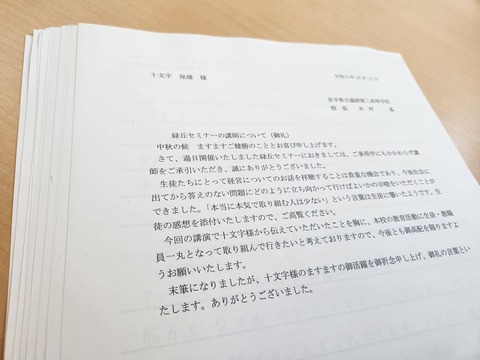 十文字 保雄 様
岩手県立盛岡第三高等学校
校長 木村
緑丘セミナーの講師について（御礼）
中秋の候 ますますご健勝のこととお喜び申し上げます。
さて、過日開催いたしました緑丘セミナーにおきましては、ご多用中にもかかわらず講
師をご承引いただき、誠にありがとうございました。
生徒たちにとって経営についてのお話を拝聴することは貴重な機会であり、今後社会に
出てから答えのない問題にどのように立ち向かって行けばよいかの示唆をいただくことが
できました。「本当に本気で取り組む人は少ない」という言葉は生徒に響いたようです。生
徒の感想を添付いたしますので、ご高覧ください。
今回の講演で十文字様から伝えていただいたことを胸に、本校の教育活動に生徒・教職
員一丸となって取り組んで行きたいと考えておりますので、今後とも御高配を賜りますよ
うお願いいたします。
末筆になりましたが、十文字様のますますの御活躍を御祈念申し上げ、御礼の言葉とい
たします。ありがとうございました。